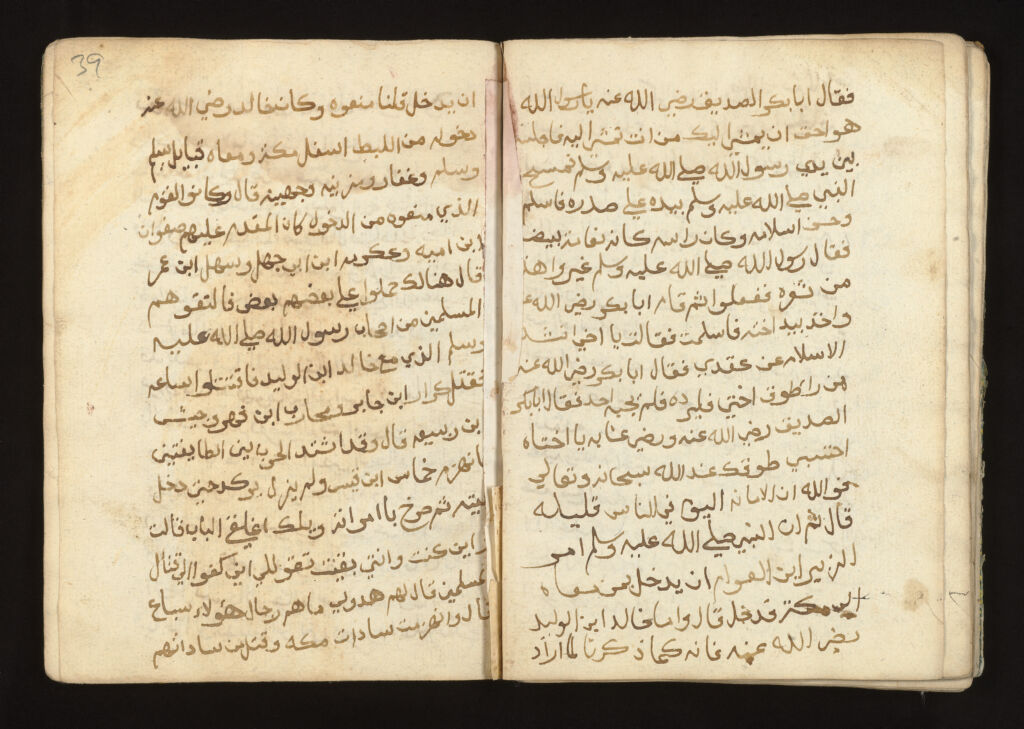 فقال ابا بكر الصديق رضي الله عنه يا رسول الله
هو احق ان يمشي اليك من انت تمشي اليه فاجلسه
بين يدي رسول الله صلي الله عليه وسلم فمسح
النبي صلي الله عليه وسلم بيده علي صدره فاسلم
وحسن اسلامه وكان راسه كانه ثغامة بيضا
فقال رسول الله صلي الله عليه وسلم غيروا هذا
من شعره ففعلوا ثم قام ابا بكر رضي الله عنه
واخذ بيد اخته فاسلمت فقالت يا اخي انشد
الاسلام عن عقدي فقال ابا بكر رضي الله عنه
من را طوق اختي فليرده فلم يجبه احد فقال ابا بكر
الصديق رضي الله عنه ورضي عنا به يا اختاه
احتسبي طوقك عند الله سبحانه وتعالي
فو الله ان الامانه اليوم في الناس قليله
قال ثم ان النبي صلي الله عليه وسلم امر
الزبير ابن العوام ان يدخل بمن معاه
الي مكة فدخل قال واما خالد ابن الوليد
رضي الله عنه فانه كما ذكرنا لما اراد
39
ان يدخل قلنا منعوه وكان خالد رضي الله عنه
دخوله من الليط اسفل مكة ومعاه قبايل اسلم
وسلم وغفار ومزينه وجهينه قال وكانو القوم
الذي منعوه من الدخول كان المقدم عليهم صفوان
ابن اميه وعكرمه ابن ابي جهل وسهل ابن عمر
قال هنالك حملوا علي بعضهم بعض فالتقوهم
المسلمين من اصحاب رسول الله صلي الله عليه
وسلم الذي مع خالد ابن الوليد فاقتتلوا ساعه
فقتل كرار ابن جابر ومحارب ابن فهر وحبيش
ابن ربيعه قال وقد اشتد الحرب بين الطايفتين
فانهزم خماس ابن قيس ولم يزل يركد حتي دخل
بيته ثم صرخ يا امراته ويلك اغلقي الباب قالت
اين كنت وانتي بقيت تقول لي اين كفوا الي قتال
المسلمين قال لهم هدوك ما هم رجال هؤلاء سباع
قال وانهزمت سادات مكه وقتل من ساداتهم